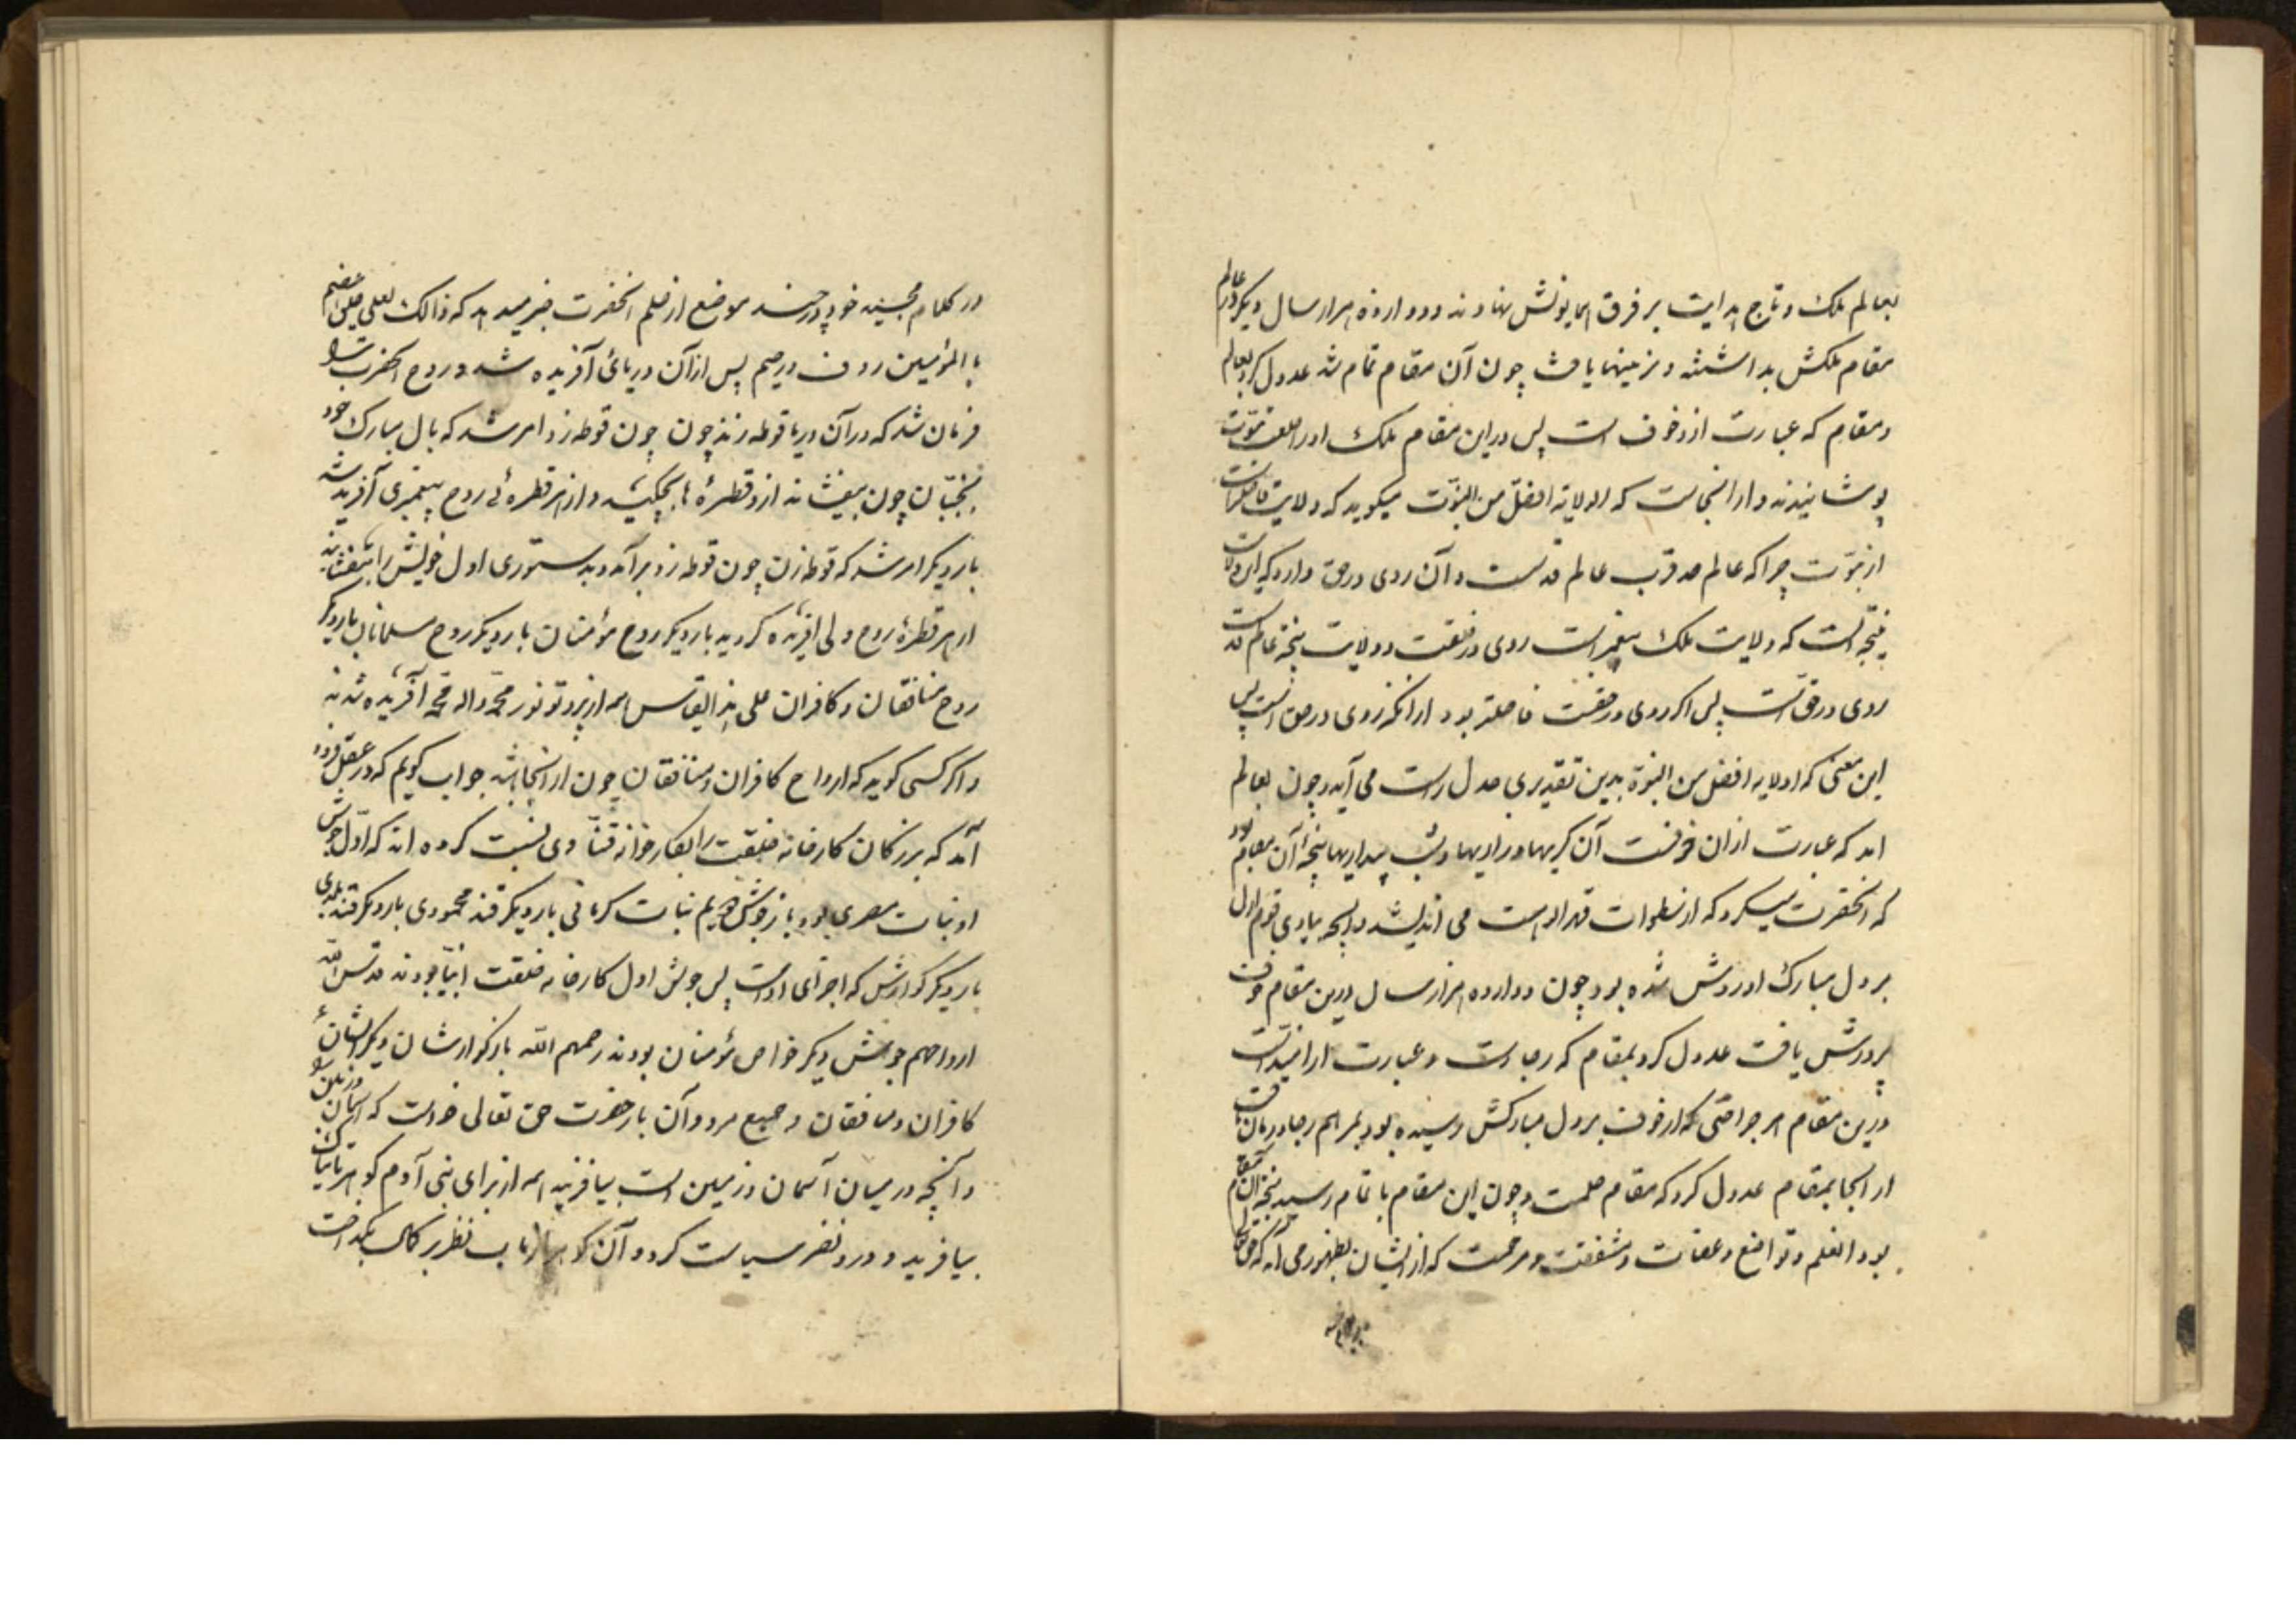 بعالم ملک و تاج هدایت بر فرق همایونش نهادند و دوازده هزار سال دیگر در عالم
مقام ملکش بداشتند و تربیتها یافت چون آن مقام تمام شد عدول کرد بعالم
و مقام که عبارت از وخوف است پس در این مقام ملک او را خلعت نبوّت
پوشانیدند و از اینجاست که الولایة افضل من النبوّت میگوید که ولایت فاضلتر است
از نبوّت چرا که عالم صد قرب عالم قدست و آن روی در حق دارد که این ولایت
نتیجه است که ولایت ملک پیغمبر است روی در خلقت و ولایت نتیجه عالم
روی در حق است پس اگر روی در حقست فاضلتر بود از آنکه روی در حق است پس
این معنی که الولایه افضل من النبوة بدین تقدیری عدل راست می آید و چون بعالم
امد که عبارت از ان خوفست آن گریها و زاریها و شب بیداریها نتیجه آن مقام بود
که انحضرت میکرد که از سطوات قهر الوهیت می اندیشید و انچه بیاوی قوم اول
بر دل مبارک او روشن شده بود چون دوازده هزار سال درین مقام خوف
پرورش یافت عدول کرد بمقام که رجاست و عبارت از امیدست
درین مقام هر جراحتی که از خوف بر دل مبارکش رسیده بود بمرهم رجا درمان یافت
از انجا بمقام عدول کرد که مقام حلمست و چون این مقام با تمام رسید نتیجه آن مقام
بود انعلم و تواضع و عفاف و شفقت و مرحمت که از ایشان بظهور می آمد که حق تعالی
در کلام مجید خود در چند موضع از حلم انحضرت خبر میدهد که ذالک لعلی خلق عظیم
با المؤمنین روف و رحیم پس از آن دریائی آفریده شد و روح انحضرت را
فرمان شد که در آن دریا غوطه زند چون چون غوطه زد امر شد که بال مبارک خود
بجنبان چون بیفشاند ازو قطرهٔ ها بچکید و از هر قطرهٔ روح پیغمبری آفریده شد
بار دیگر امر شد که غوطه زن چون غوطه زد برآمد و بدستوری اول خویش را بیفشاند
از هر قطرهٔ روح ولی افریده گردید بار دیگر روح مؤمنان بار دیگر روح مسلمانان بار دیگر
روح منافقان و کافران علی هذا القیاس همه از پرتو نور محمّد و اله محمّد آفریده شدند
و اگر کسی گوید که ارواح کافران و منافقان چون از انجا باشد جواب گویم که در عقل فرود
آمد که بزرگان کارخانه خلقت را بکارخانه قنّادی نسبت کرده اند که اوّل جوش
او نبات مصری بود باز جوش دویم نبات کرمانی بار دیگر قند محمودی بار دیگر قند بلدی
بار دیگر کوارش که اجزای اوست پس جوش اول کارخانه خلقت انبیا بودند قدس الله
ارواحهم جوش دیگر خواص مؤمنان بودند رحمهم الله باز گوارشان دیگر ایشان
کافران و منافقان و جمیع مردودان بار حضرت حق تعالی خواست که آسمان و زمین
و آنچه در میان آسمان و زمین است بیافریند همه از برای بنی آدم گوهر تابناک
بیافرید و در و نظر سیاست کرد و آن گوهر از تاب نظر پر کمال بگداخت